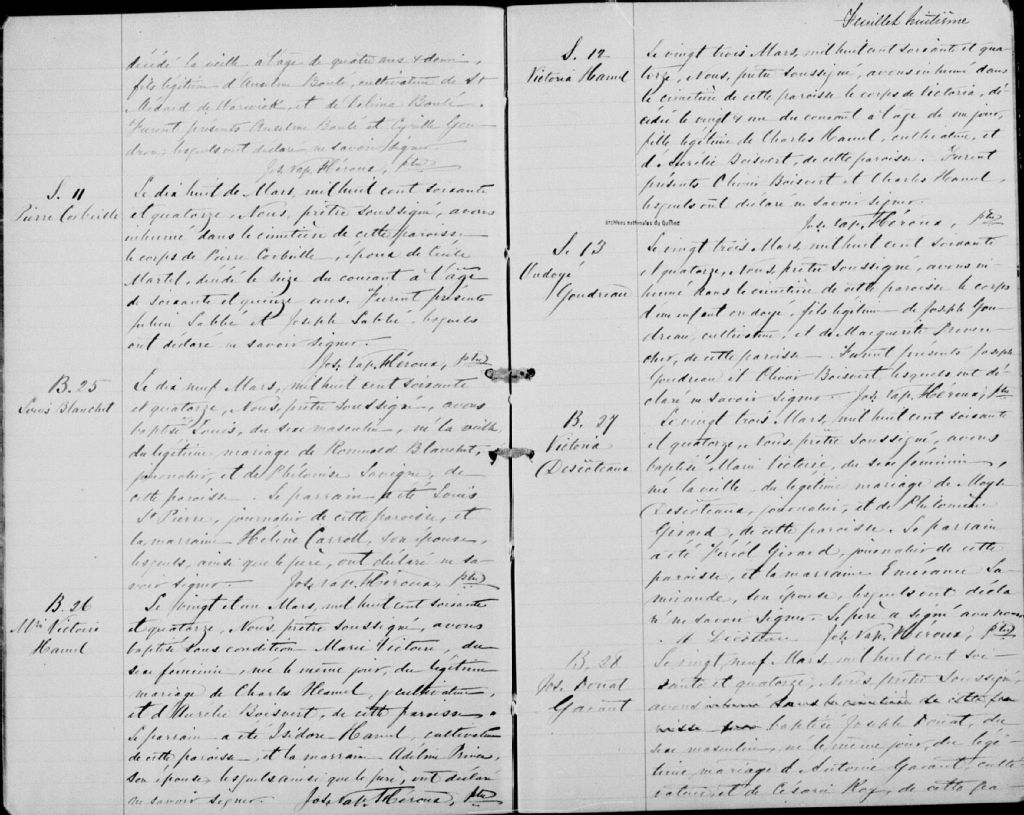 décédé la veille à l'age de quatre ans & demi,
fils légitime d'Anselme Boulé, cultivateur de St
Médard de Warwick, et de Boulé.
Furent présents Anselme Boulé et Cyrille Gou-
dreau, lesquels ont déclaré ne savoir signer.
Jos. Nap. Héroux, ptre
S. 11
Pierre Corbeille
Le dix huit de Mars, mil huit cent soixante
et quatorze, Nous, prêtre soussigné, avons
inhumé dans le cimetière de cette paroisse
le corps de Pierre Corbeille, époux de Cécile
Martel, décédé le seize du courant à l'âge
de soixante et quinze ans. Furent présents
Julien Labbé et Joseph Labbé, lesquels
ont déclaré ne savoir signer.
Jos. Nap. Héroux, ptre
B. 25
Louis Blanchet
Le dix neuf Mars, mil huit cent soixante
et quatorze, Nous, prêtre soussigné, avons
baptisé Louis, du sexe masculin, né la veille
du légitime mariage de Romuald Blanchet,
journalier, et de Phélonise Lavigne, de
cette paroisse. Le parrain a été Louis
St Pierre, journalier de cette paroisse, et
la marraine Hélène Carroll, son épouse,
lesquels, ainsi que le père, ont déclaré ne sa-
voir signer. Jos. Nap. Héroux, ptre
B. 26
Mie Victoire
Hamel
Le vingt et un Mars, mil huit cent soixante
et quatorze, Nous, prêtre soussigné, avons
baptisé sous condition Marie Victoire, du
sexe féminin, née le même jour, du légitime
mariage de Charles Hamel, cultivateur,
et d'Aurélie Boisvert, de cette paroisse.
Le parrain a été Isidore Hamel, cultivateur
de cette paroisse, et la marraine Adeline Prince,
son épouse, lesquels ainsi que le père, ont déclaré
ne savoir signer. Jos. Nap. Héroux, ptre
Feuillet huitième
S. 12
Victoria Hamel
Le vingt trois Mars, mil huit cent soixante et qua-
torze, Nous, prêtre soussigné, avons inhumé dans
le cimetière de cette paroisse le corps de Victoria, dé-
cédée le vingt & un du courant à l'age de un jour,
fille légitime de Charles Hamel, cultivateur, et
d'Aurélie Boisvert, de cette paroisse. Furent
présents Olivier Boisvert et Charles Hamel,
lesquels ont déclaré ne savoir signer.
Jos. Nap. Héroux, ptre
Archives nationales du Québec
S. 13
Ondoyé
Goudreau
Le vingt trois Mars, mil huit cent soixante
et quatorze, Nous, prêtre soussigné, avons in-
humé dans le cimetière de cette paroisse le corps
d'un enfant ondoyé, fils légitime de Joseph Gou-
dreau, cultivateur, et de Marguerite Proven-
cher, de cette paroisse. Furent présents Joseph
Goudreau et Olivier Boisvert, lesquels ont dé-
claré ne savoir signer. Jos. Nap. Héroux, ptre
B. 27
Victoria
Descôteaux
Le vingt trois Mars, mil huit cent soixante
et quatorze, Nous, prêtre soussigné, avons
baptisé Marie Victoire, du sexe féminin,
née la veille du légitime mariage de Moyse
Descôteaux, journalier, et de Philomène
Girard, de cette paroisse. Le parrain
a été Girard, journalier de cette
paroisse, et la marraine Emérance La-
mirande, son épouse, lesquels ont décla-
ré ne savoir signer. Le père a signé avec nous.
M Descôteau Jos. Nap. Héroux, ptre
B. 28
Jos. Donat
Gavant
Le vingt neuf Mars, mil huit cent soi-
xante et quatorze, Nous, prêtre soussigné,
avons inhumé dans le cimetière de cette pa-
roisse baptisé Joseph Donat, du
sexe masculin, né le même jour, du légi-
time mariage d'Antoine Gavant, culti-
vateur, et de Césarie Roy, de cette pa-